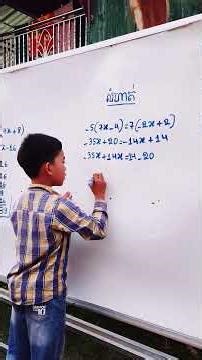 លំហាត់
-5(7x-4)=7(-2x+2)
-35x+20=-14x+14
-35x+14x=14-20
x+8)
x-16